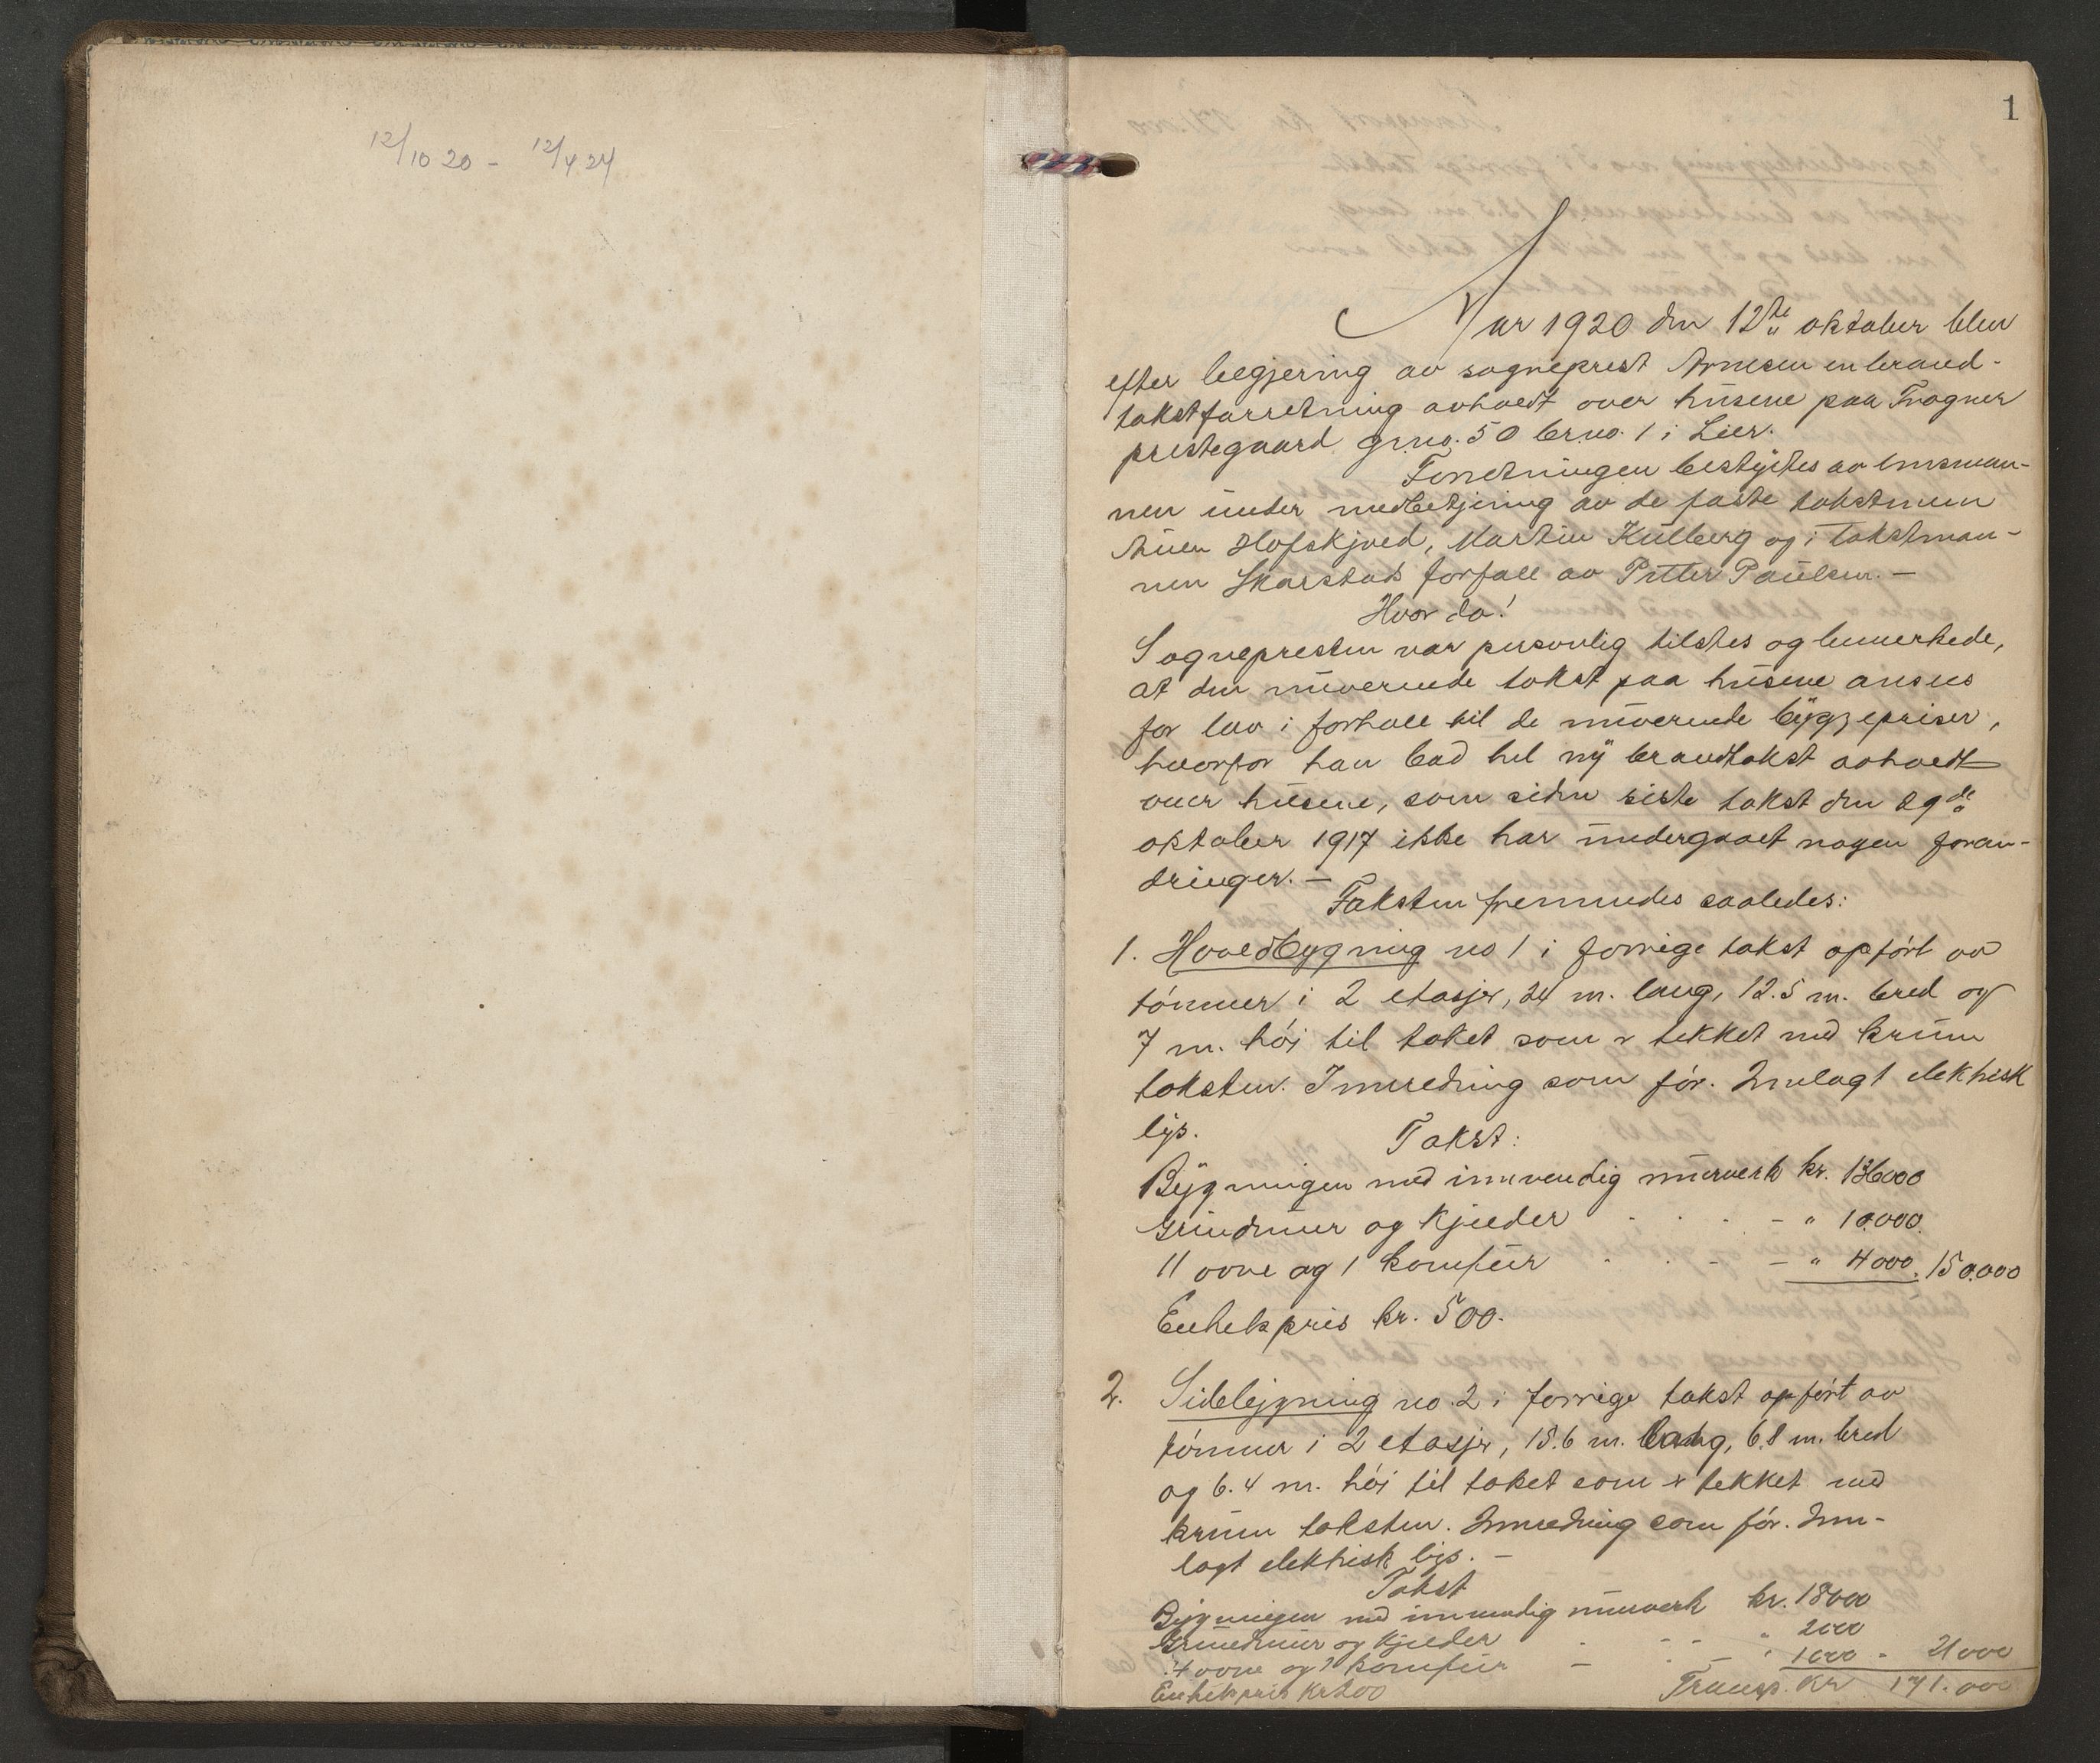 12/10 20 - 12/4 24
1
Aar 1920 den 12te oktober blev
efter begjering av sogneprest Arnesen en brand-
takstforretning avholdt over husene paa Frogner
prestegaard grno. 50 brno. 1 i Lier.
Forretningen bestyrtes av lensman-
nen under medbetjening av de faste takstmenn
Huen Hofskjold, Martin Kulberg og i takstman-
nen Skarstads forfall av Petter Paulsen. -
Hvor da!
Sognepresten var personlig tilstes og bemerkede,
at den nuverende takst paa husene ansees
for lav i forhold til de nuverende byggepriser,
hvorfor han bad hel ny brandtakst avholdt
over husene, som siden siste takst den 29de
oktober 1917 ikke har undergaaet nogen foran-
dringer. -
Taksten fremmedes saaledes:
1. Hovedbygning no 1 i forrige takst opført av
tømmer i 2 etasjer, 24 m. lang, 12.5 m. bred og
7 m. høi til taket som er tekket med krum
taksten. Innredning som før. Innlagt elektrisk
lys.
Takst:
Bygningen med innvendig murverk kr. 136000
Grundmur og kjelder - " 10.000.
11 ovne og 1 komfur - " 4000. 150.000
Enhetspris kr. 500.
2. Sidebygning no. 2 i forrige takst opført av
tømmer i 2 etasjer, 15.6 m. lang, 6.8 m. bred
og 6.4 m. høi til taket som er tekket med
krum taksten. Innredning som før. Inn-
lagt elektrisk lys. -
Takst
Bygningen med innvendig murverk kr. 18000
Grundmur og kjelder - " 2000
4 ovne og 1 komfur - " 1000 - 21000
Enhetspris kr 200 Transp. kr 171.000